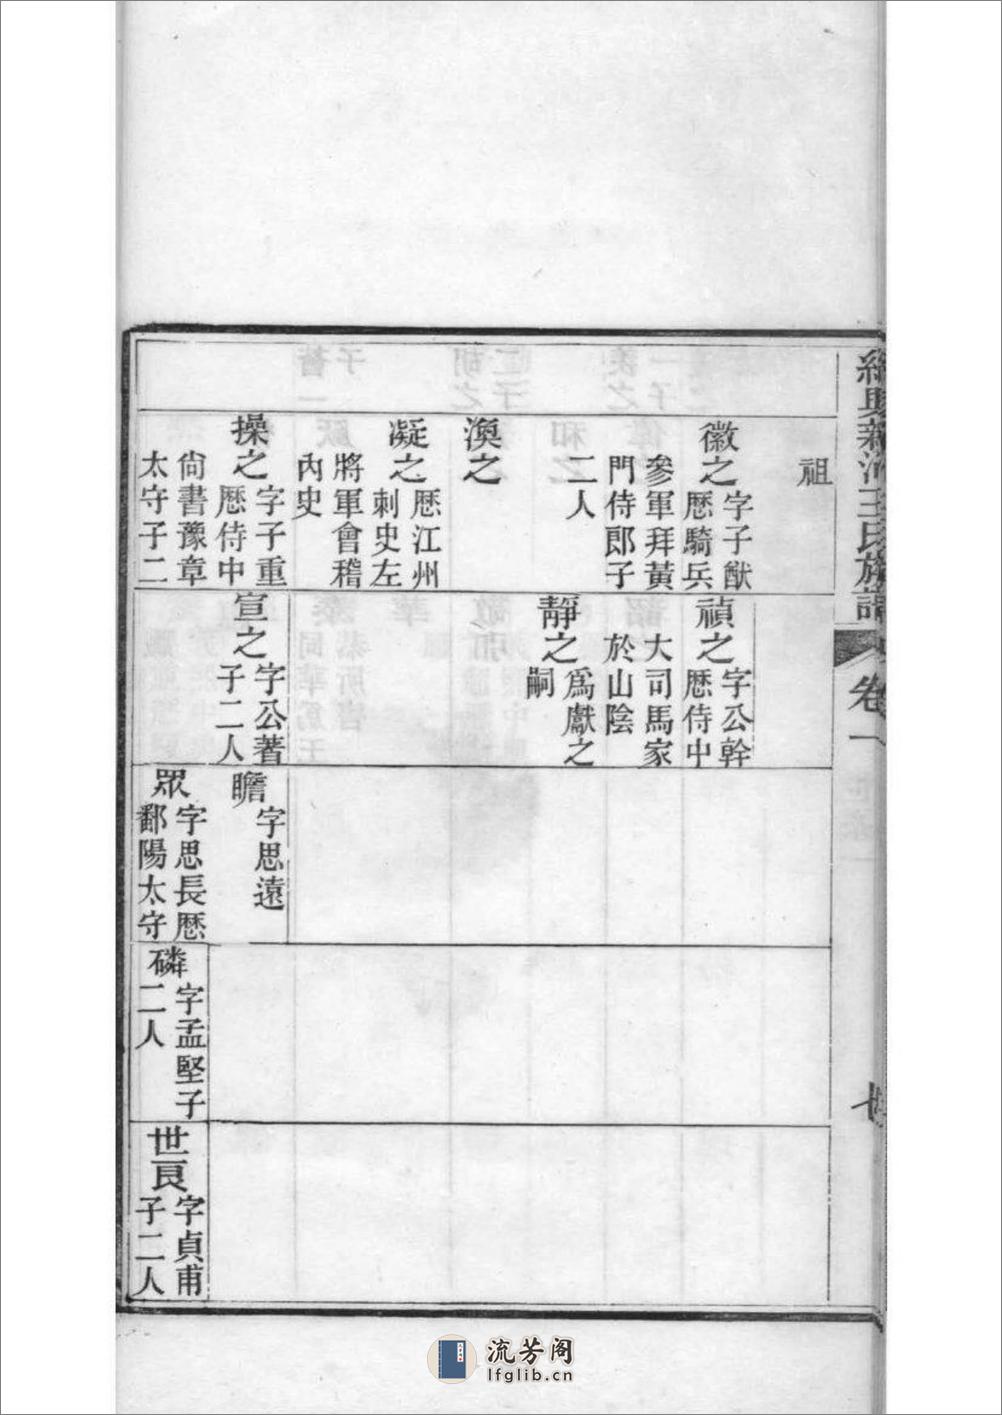 紹興新河王氏族譜
卷一
七
祖
徽之
字子猷
歷騎兵
參軍拜黃
門侍郎子
二人
渙之
凝之
歷江州
刺史左
將軍會稽
內史
操之
字子重
歷侍中
尚書豫章
太守子二
禎之
字公幹
歷侍中
大司馬家
於山陰
靜之
為獻之
嗣
宣之
字公著
子二人
瞻
字思遠
眾
字思長歷
鄱陽太守
磷
字孟堅子
二人
世良
字貞甫
子二人
流芳阁
lfglib.cn